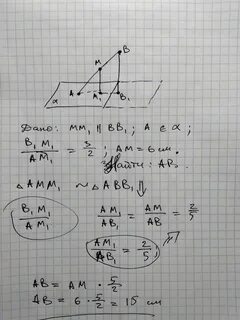 B
M
A
A₁
B₁
α
Дано: MM₁ ∥ BB₁; A ∈ α;
B₁M₁/AM₁ = 3/2; AM = 6 см.
Найти: AB.
△AMM₁ ~ △ABB₁ ⇓
B₁M₁/AM₁
AM₁/AB₁ = AM/AB = 2/5
AM₁/AB₁ = 2/5
AB = AM · 5/2
AB = 6 · 5/2 = 15 см